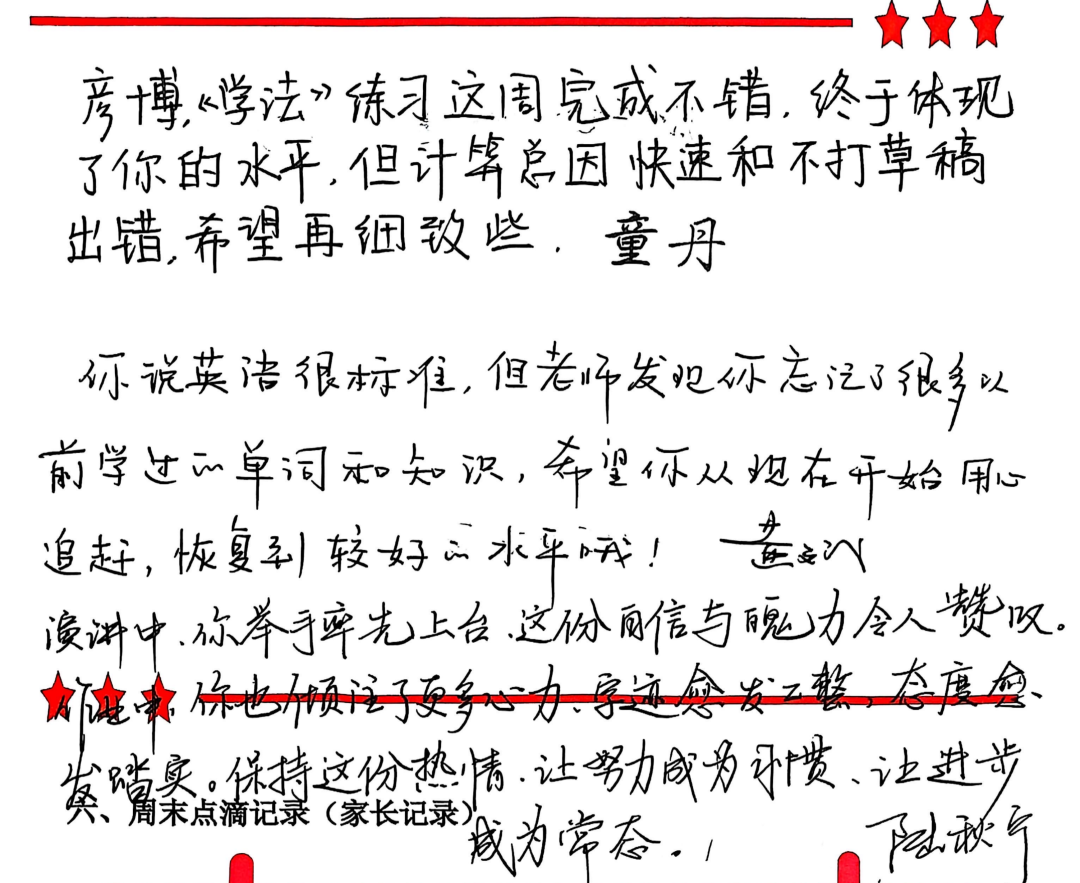 彦博,《学法》练习这周完成不错.终于体现
了你的水平.但计算总因快速和不打草稿
出错,希望再细致些. 童丹
你说英语很标准,但老师发现你忘记了很多以
前学过的单词和知识,希望你从现在开始用心
追赶,恢复到较好的水平哦!
演讲中、你举手率先上台、这份自信与魄力令人赞叹。
你也倾注了更多心力、字迹愈发工整、态度愈
发踏实。保持这份热情、让努力成为习惯、让进步
六、周末点滴记录(家长记录)
成为常态。! 陆秋宁